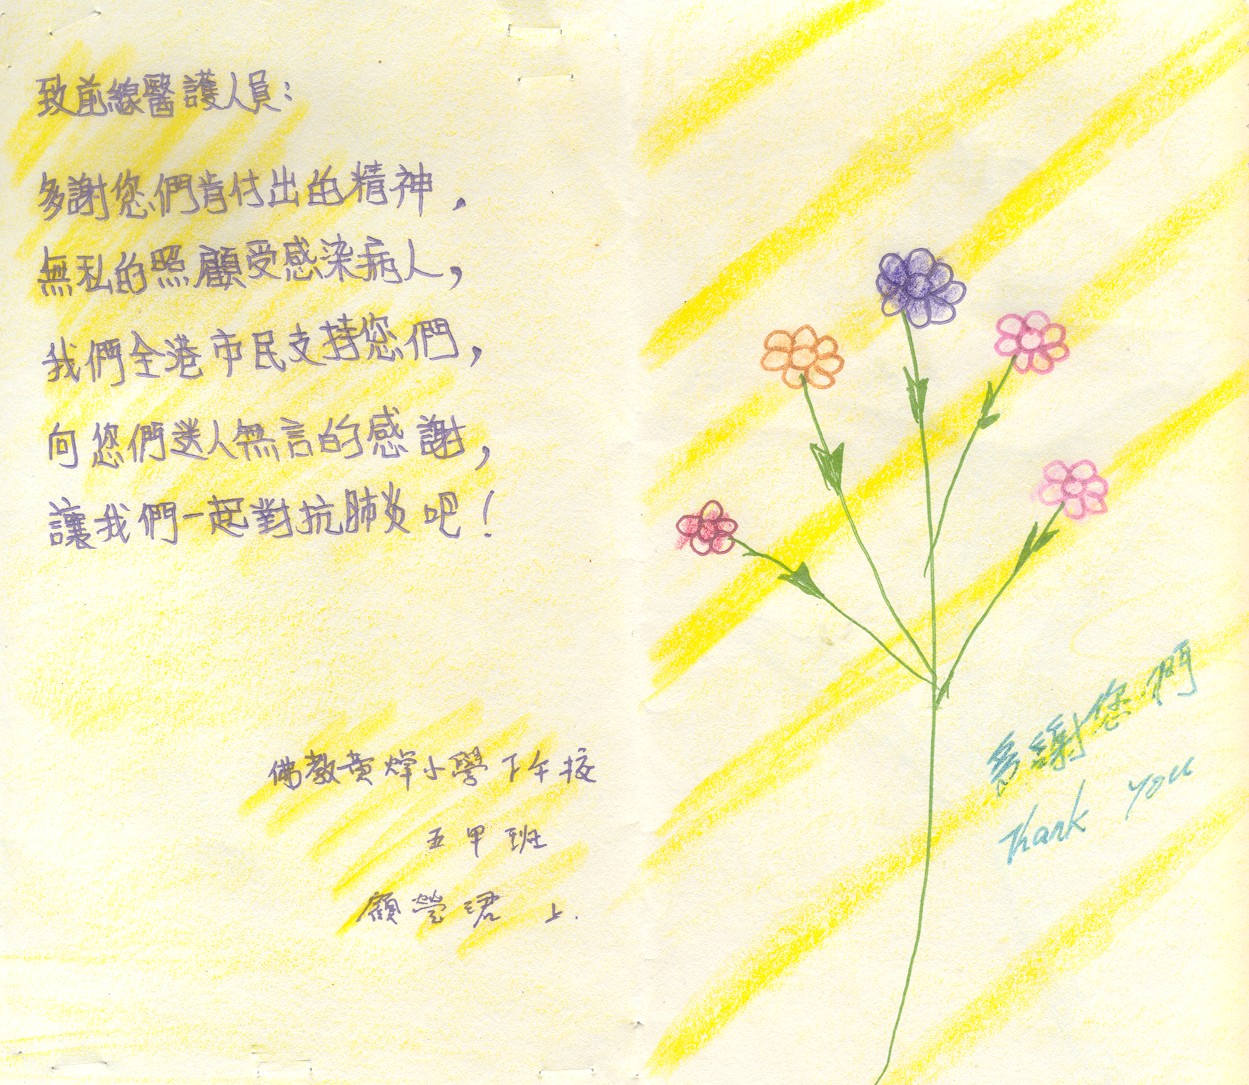 致前線醫護人員：
多謝您們肯付出的精神，
無私的照顧受感染病人，
我們全港市民支持您們，
向您們送人無言的感謝，
讓我們一起對抗肺炎吧！
佛教黃焯小學下午校
五甲班
顧瑩珺 上.
多謝您們
Thank you